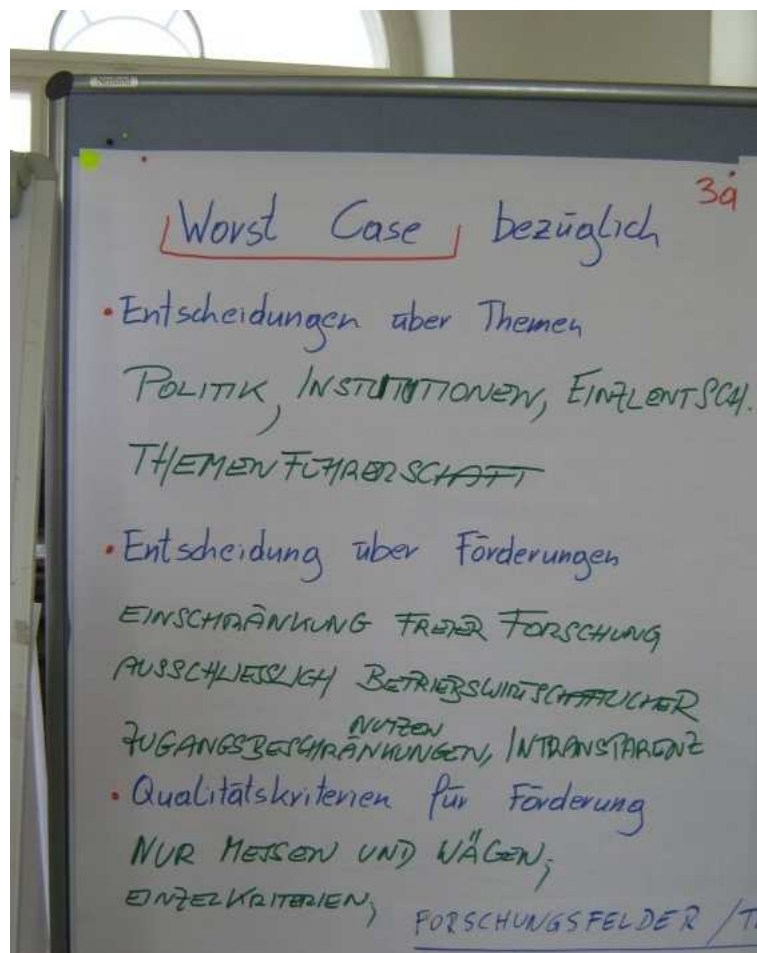 Neuland
3a
Worst Case bezüglich
• Entscheidungen über Themen
POLITIK, INSTITUTIONEN, EINZLENTSCH.
THEMENFÜHRERSCHAFT
• Entscheidung über Förderungen
EINSCHRÄNKUNG FREIER FORSCHUNG
AUSSCHLIESSLICH BETRIEBSWIRTSCHAFTLICHER
NUTZEN
ZUGANGSBESCHRÄNKUNGEN, INTRANSPARENZ
• Qualitätskriterien für Förderung
NUR MESSEN UND WÄGEN;
EINZELKRITERIEN;
FORSCHUNGSFELDER / T